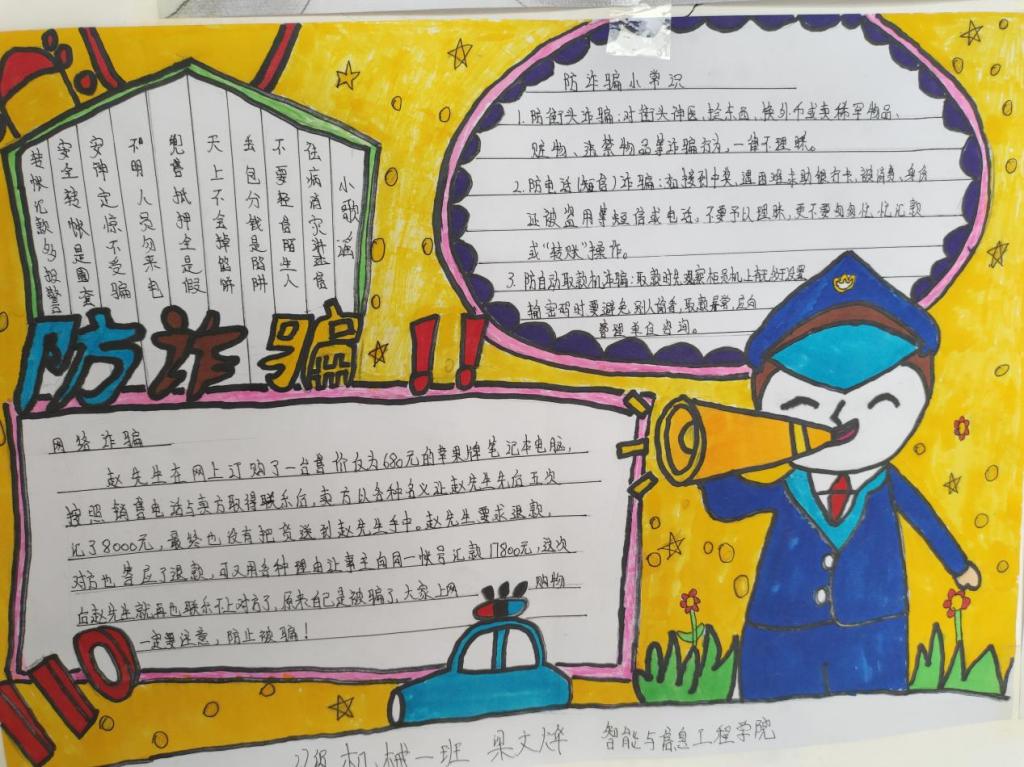 小歌谣
祛病消灾讲迷信
不要轻信陌生人
丢包分钱是陷阱
天上不会掉馅饼
兜售抵押全是假
不明人员勿来电
安神定惊不受骗
安全转帐是圈套
转帐汇款多报警
防诈骗!!
防诈骗小常识
1. 防街头诈骗:对街头神医、捡东西、换外币或卖稀罕物品、
赃物、违禁物品等诈骗行为,一律不理睬。
2. 防电话(短信)诈骗:如接到中奖、遇困难求助银行卡、被消费、身份
证被盗用等短信或电话,不要予以理睬,更不要匆匆忙忙汇款
或"转账"操作。
3. 防自动取款机诈骗:取款时先观察柜员机上有无多于设置
输密码时要避免别人偷看,取款异常,应向
管理单位咨询。
网络诈骗
赵先生在网上订购了一台售价仅为680元的苹果牌笔记本电脑,
按照销售电话与卖方取得联系后,卖方以各种名义让赵先生先后五次
汇了8000元,最终也没有把货送到赵先生手中。赵先生要求退款,
对方也答应了退款,可又用各种理由让事主向同一帐号汇款17800元,这次
后赵先生就再也联系不上对方了,原来自己是被骗了,大家上网购物
一定要注意,防止被骗!
110
机械一班 梁文烨 智能与信息工程学院